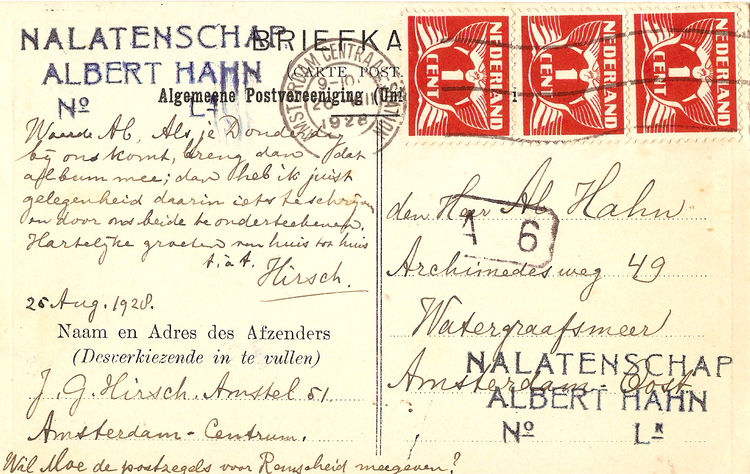 NALATENSCHAP
ALBERT HAHN
No L
BRIEFKA
(CARTE POST
Algemeene Postvereeniging (Uni
AMSTERDAM CENTRAAL STATION
1928
NEDERLAND
1
CENT
NEDERLAND
1
CENT
NEDERLAND
1
CENT
Waarde Ab, Als je Donderdag
bij ons komt, breng dan dat
aflbum mee; dan heb ik juist
gelegenheid daarin iets te schrijven
en door ons beide te onderteekenen.
Hartelijke groeten van huis tot huis
t. à t.
Hirsch.
25 Aug. 1928.
Naam en Adres des Afzenders
(Desverkiezende in te vullen)
J. G. Hirsch. Amstel 51.
Amsterdam-Centrum.
Wil Moe de postzegels voor Remscheid meegeven?
den Heer Ab. Hahn
1 6
Archimedesweg 49
Watergraafsmeer
Amsterdam-Oost
NALATENSCHAP
ALBERT HAHN
No L